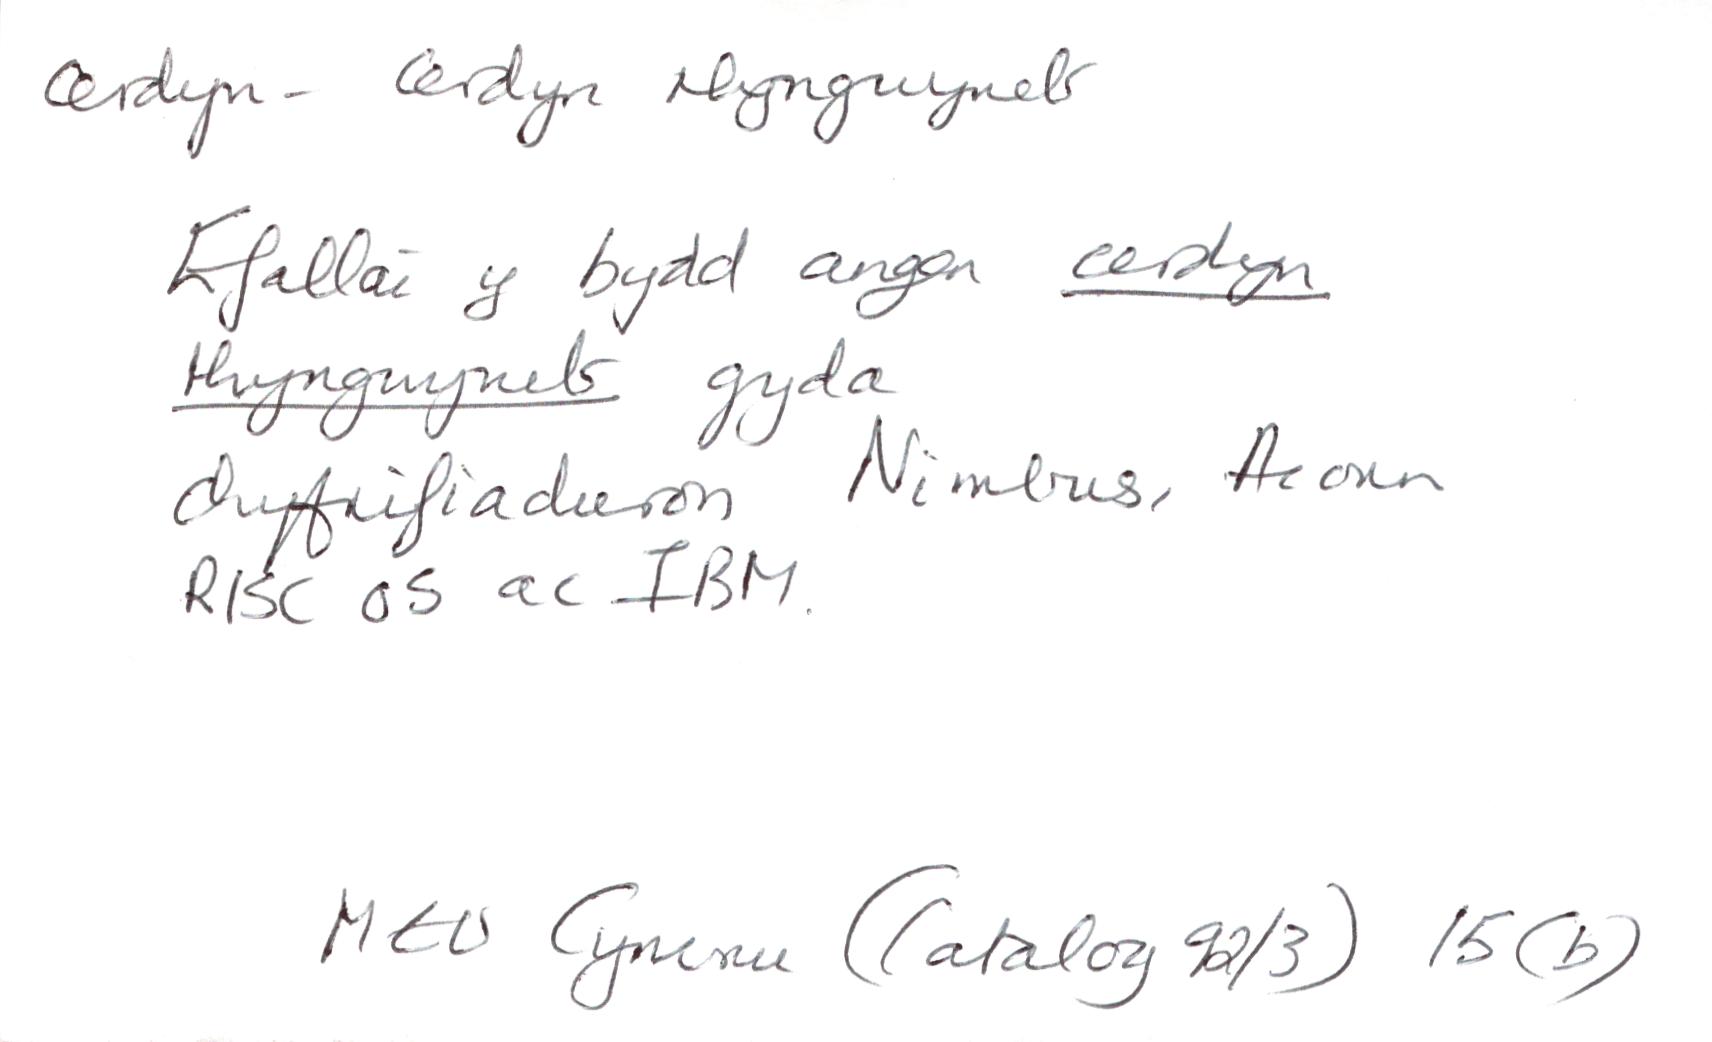 cerdyn - cerdyn rhyngwyneb
Efallai y bydd angen cerdyn
rhyngwyneb gyda
chyfrifiaduron Nimbus, Acorn
RISC OS ac IBM.
MEU Cymru (Catalog 92/3) 15(b)